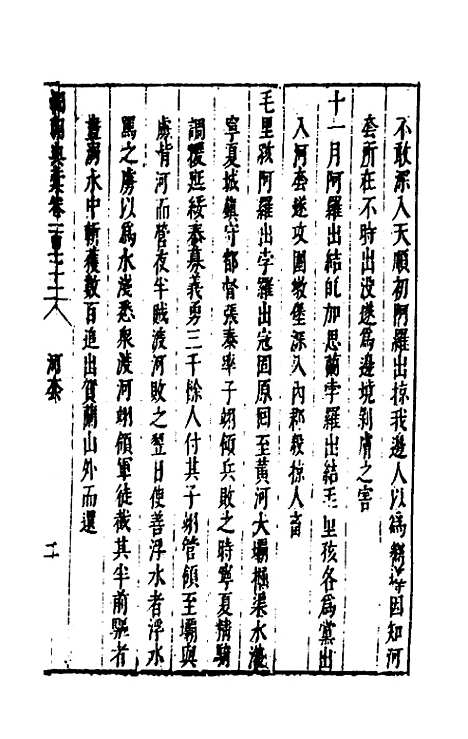 不敢深入天順初阿羅出掠我邊人以為鄉導因知河
套所在不時出沒遂為邊境剝膚之害
十一月阿羅出結乩加思蘭孛羅出結毛里孩各為黨出
入河套遂攻圍墩堡深入內郡殺掠人畜
毛里孩阿羅出孛羅出寇固原回至黃河大壩極渠水漫
寧夏城鎮守都督張泰率子翊領兵敗之時寧夏精騎
調援延綏泰募義勇三千餘人付其子翊管領至壩與
虜背河而營夜半賊渡河敗之翌日使善浮水者浮水
罵之虜以為水淺悉眾渡河翊領軍徒截其半前驅者
盡溺水中斬獲數百追出賀蘭山外而還
典彙卷一百七十二 河套 二